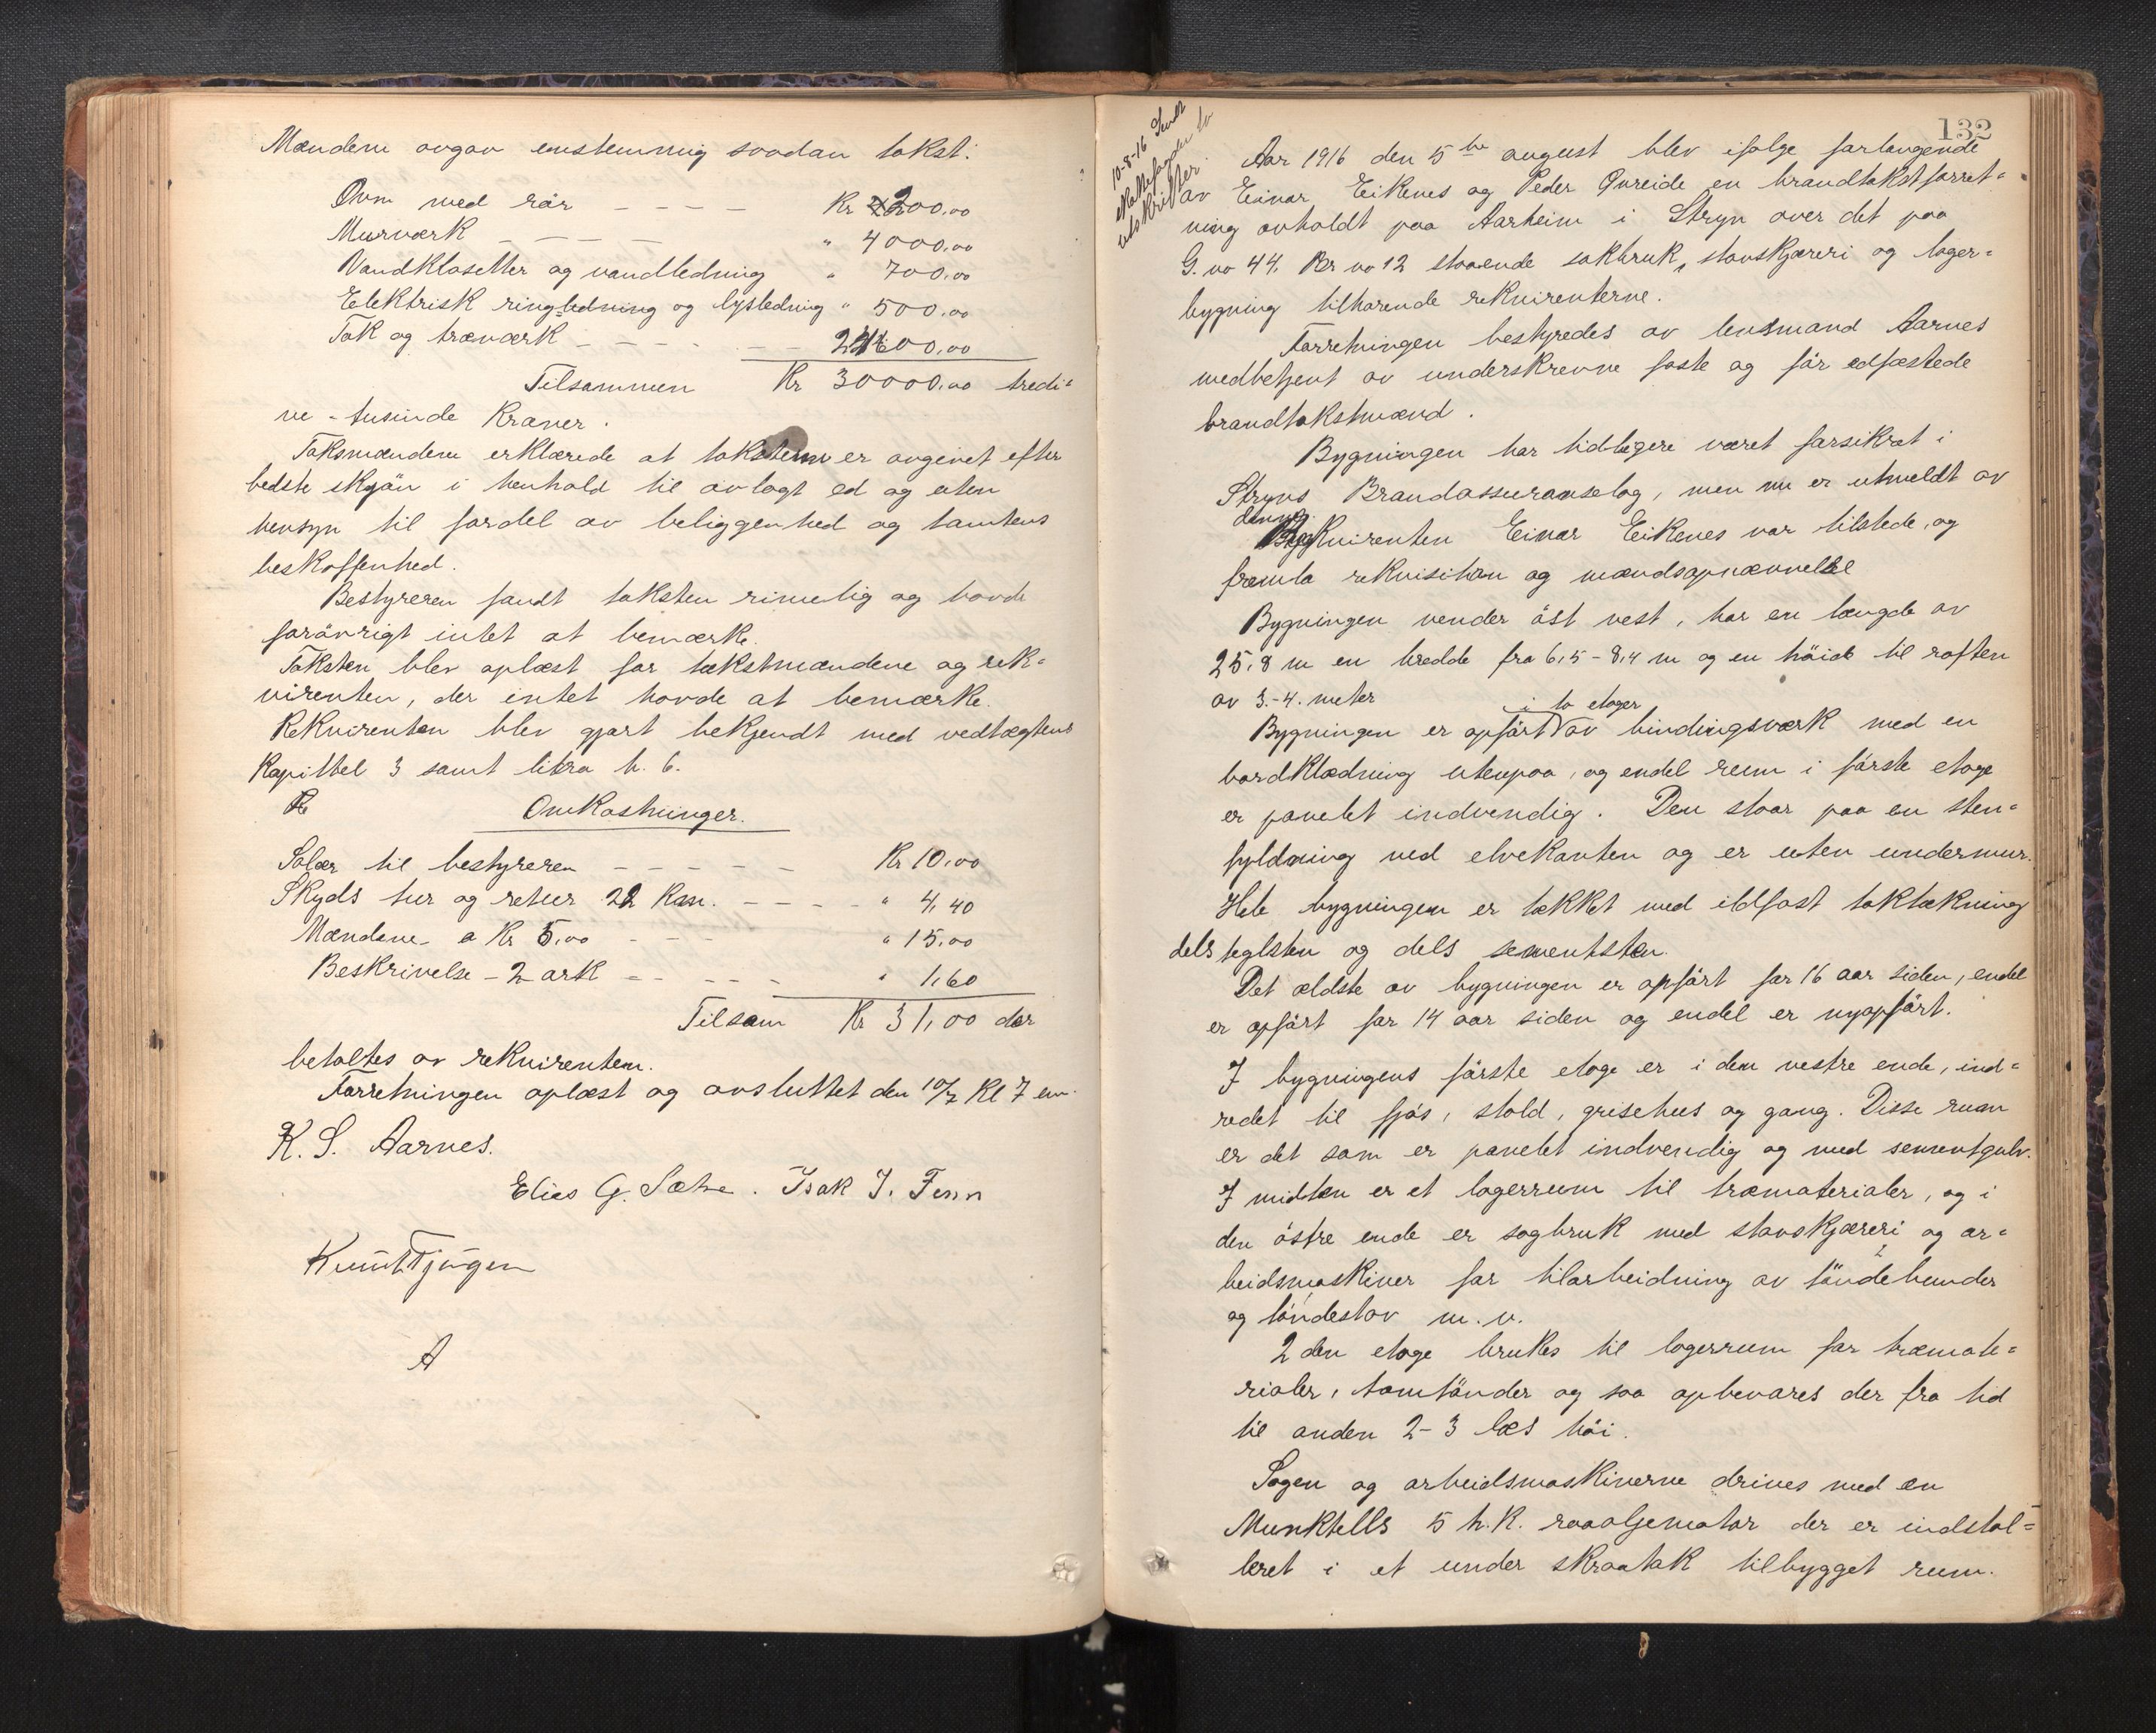 Mændene avgav enstemmig saadan takst:
Ovn med rör - - - - Kr 200.00
Murværk - - - - " 4000.00
Vandklosetter og vandledning " 700.00
Elektrisk ringledning og lysledning " 500.00
Tak og træværk - - - - 24600.00
Tilsammen Kr 30000.00 tredi-
ve-tusinde Kroner.
Taksmændene erklærede at taksten er avgivet efter
bedste skjön i henhold til avlagt ed og uten
hensyn til fordel av beliggenhed og tomtens
beskaffenhed.
Bestyreren fandt taksten rimelig og havde
forövrigt intet at bemærke.
Taksten blev oplæst for takstmændene og rek-
virenten, der intet havde at bemærke.
Rekvirenten blev gjort bekjendt med vedtægtens
Kapittel 3 samt litra h. 6.
R
Omkostninger.
Salær til bestyreren - - - - Kr 10.00
Skyds tur og retur 22 Km. - - - - " 4,40
Mændene a Kr 5.00 - - - " 15.00
Beskrivelse - 2 ark - - - - " 1,60
Tilsam Kr 31,00 der
betaltes av rekvirenten.
Forretningen oplæst og avsluttet den 10/7 Kl 7 em.
K. S. Aarnes.
Elias G. Sætre. Isak J. Fenn
Knut Tjugen
A
132
10-8-16 Sendt
utskrifter.
Aar 1916 den 5te august blev ifølge forlangende
av Einar Eikenes og Peder Qvreide en brandtakstforret-
ning avholdt paa Aarheim i Stryn over det paa
G. no 44, Br no 12 staaende sakbruk, stavskjæreri og lager-
bygning tilhørende rekvirenterne.
Forretningen bestyredes av lensmand Aarnes
medbetjent av underskrevne faste og før edfæstede
brandtakstmænd.
Bygningen har tidligere været forsikret i
Stryns Brandassuranselag, men nu er utmeldt av
denne.
Rekvirenten Einar Eikenes var tilstede, og
fremla rekvisition og mændsopnævnelse
Bygningen vender öst vest, har en længde av
25,8 m en bredde fra 6,5 - 8,4 m og en höide til raften
av 3.-4. meter
i to etager
Bygningen er opfört av bindingsværk med en
bordklædning utenpaa, og endel rum i förste etage
er panelet indvendig. Den staar paa en sten-
fyldning ved elvekanten og er uten undermur.
Hele bygningen er tækket med ildfast taktækning
dels teglsten og dels sementsten.
Det ældste av bygningen er opfört for 16 aar siden, endel
er opfört for 14 aar siden og endel er nyopfört.
I bygningens förste etage er i den vestre ende, ind-
redet til fjös, stald, grisehus og gang. Disse rum
er det som er panelet indvendig og med sementgulv.
I midten er et lagerrum til træmaterialer, og i
den östre ende er sagbruk med stavskjæreri og ar-
beidsmaskiner for tilarbeidning av töndebunder
og töndestav m. v.
2 den etage brukes til lagerrum for træmate-
rialer, tomtönder og saa opbevares der fra tid
til anden 2-3 læs höi.
Sagen og arbeidsmaskinerne drives med en
Munktells 5 h.K. raaoljemotor der er indstal-
leret i et under skraatak tilbygget rum.